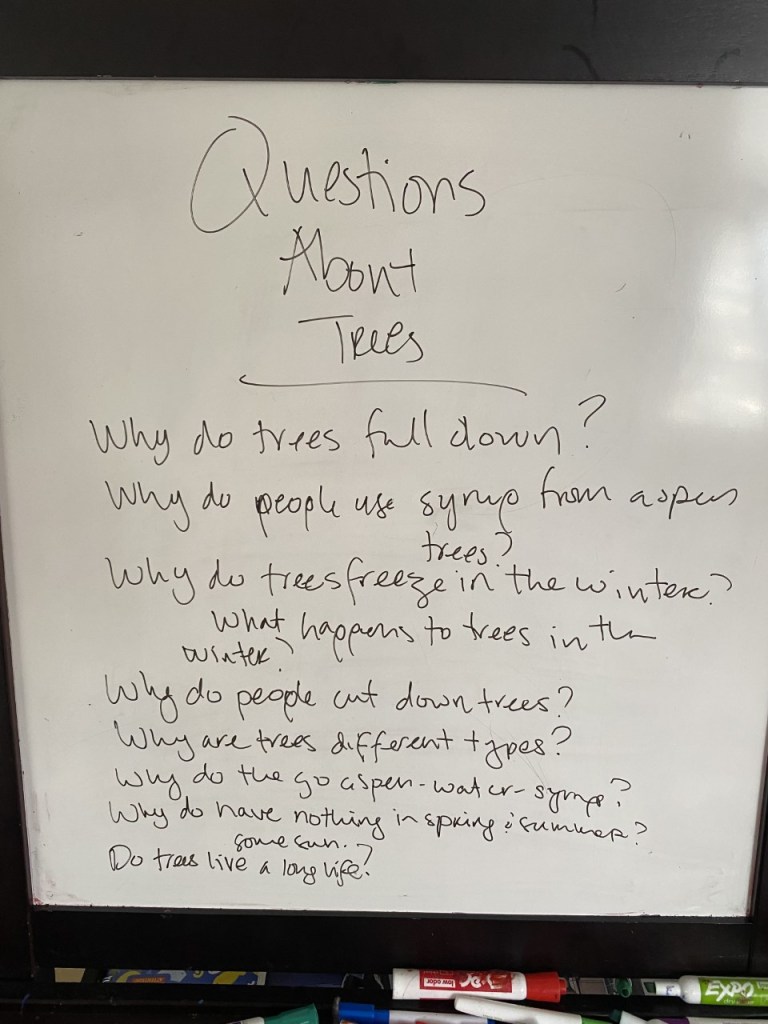 Questions
About
Trees
Why do trees fall down?
Why do people use syrup from aspen
trees?
Why do trees freeze in the winter?
What happens to trees in the
winter?
Why do people cut down trees?
Why are trees different types?
Why do the go aspen-water-syrup?
Why do have nothing in spring & summer?
some sun.
Do trees live a long life?
low odor
EXPO